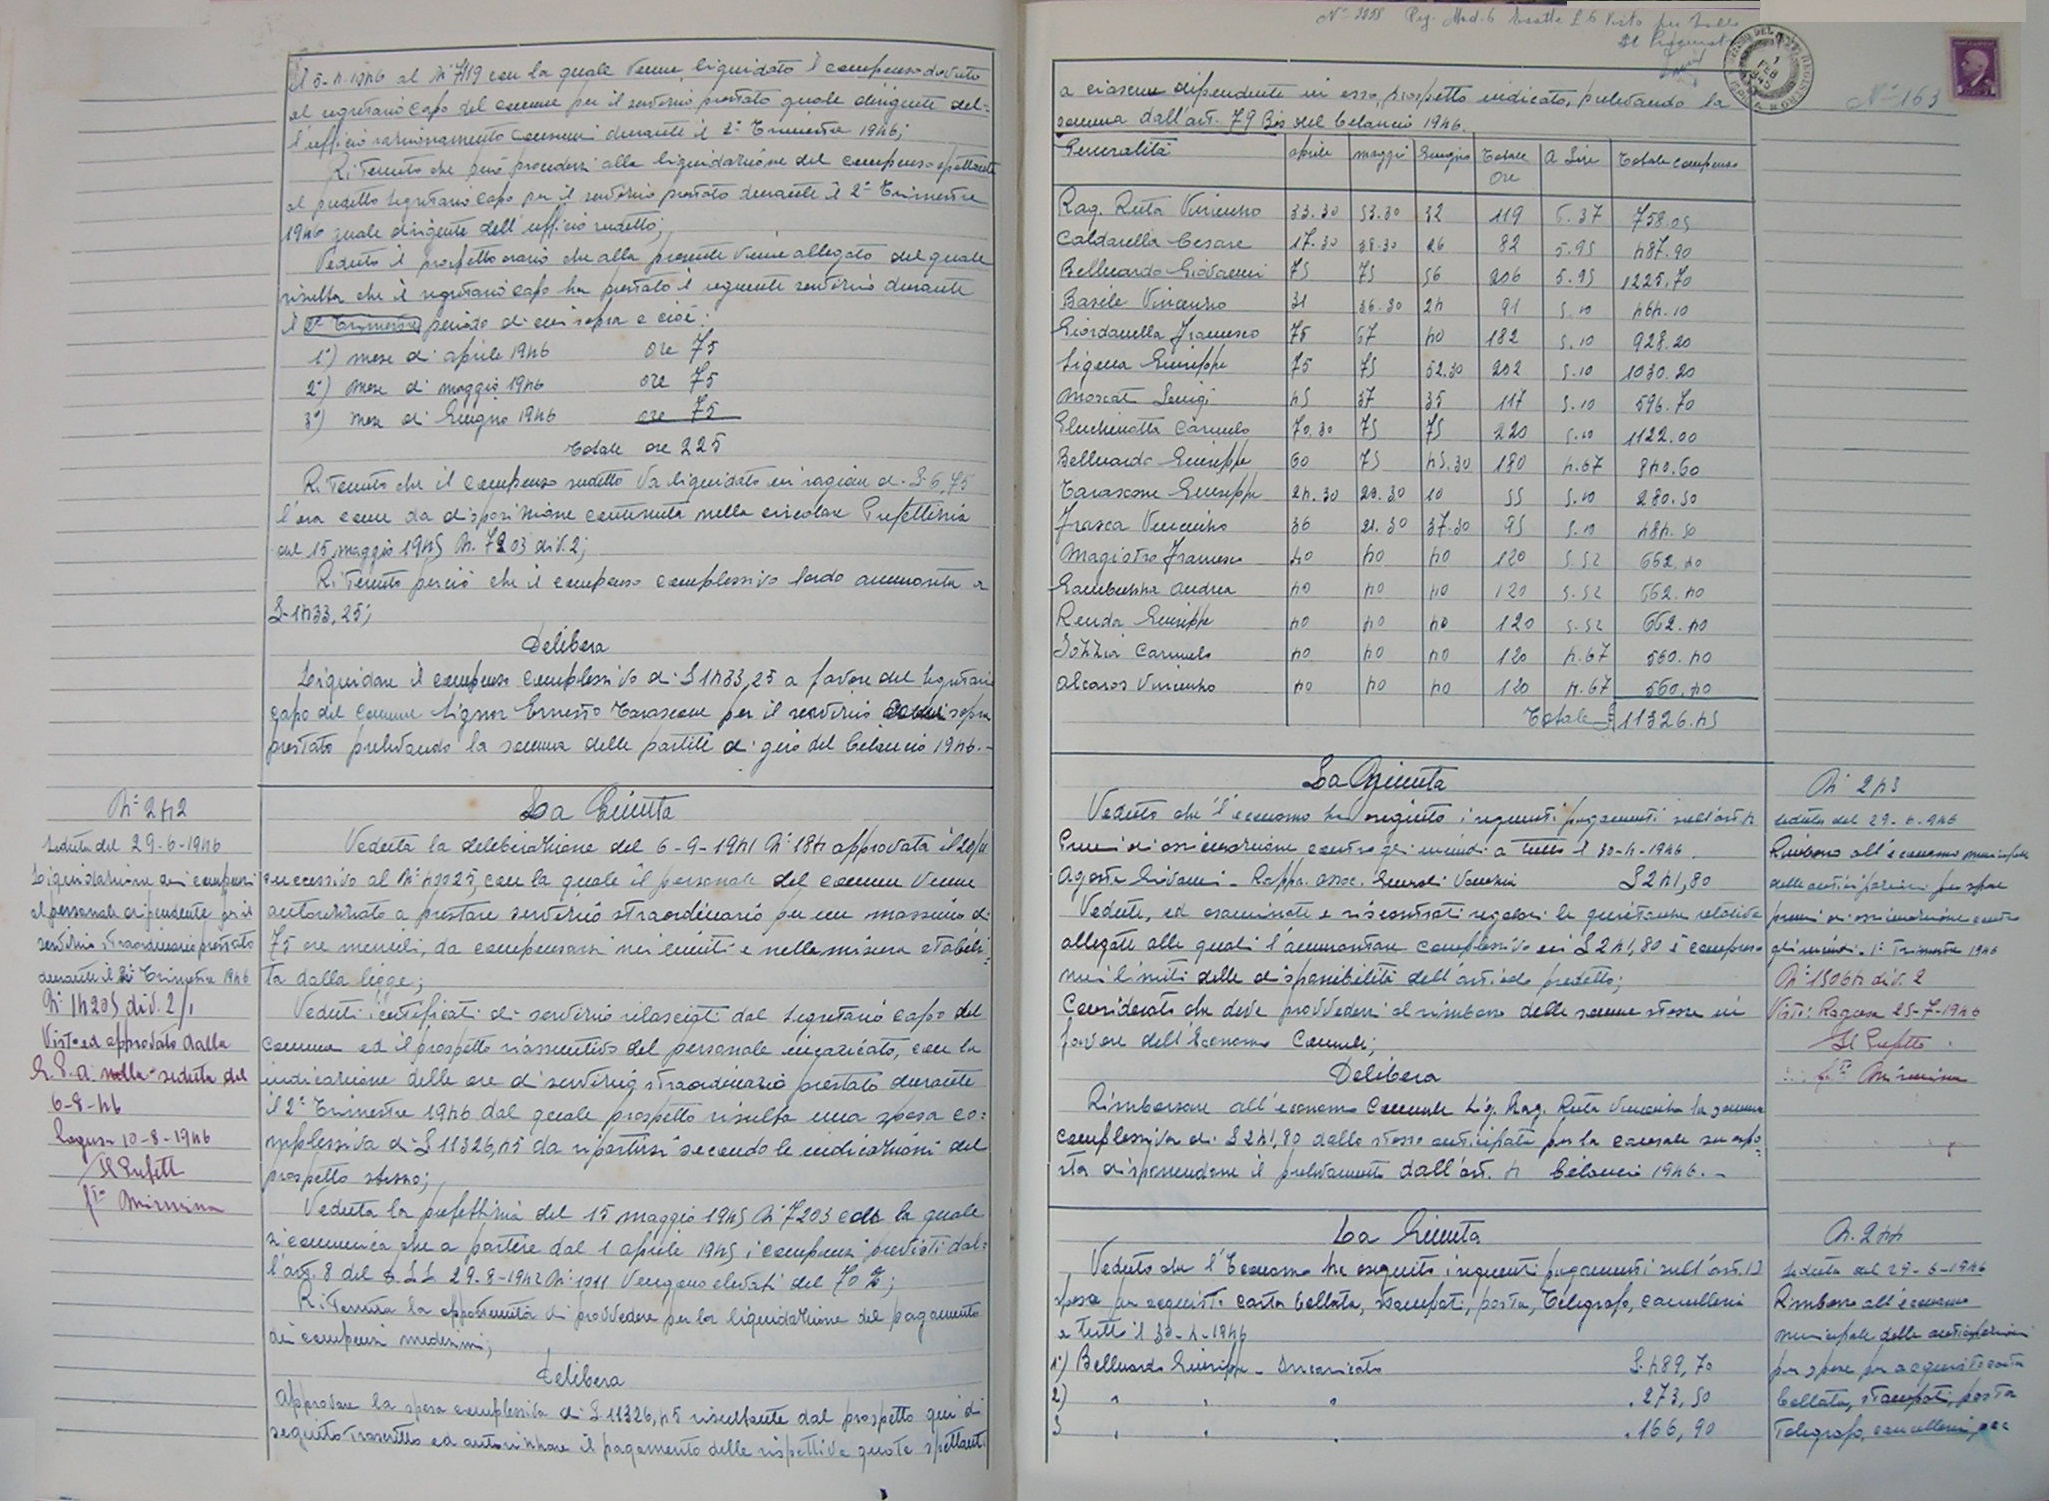 Il 5-4-1946 al N° 7119 con la quale venne liquidato il compenso dovuto
al segretario capo del comune per il servizio prestato quale dirigente del=
l'ufficio razionamento consumi durante il 2° Trimestre 1946;
Ritenuto che può procedersi alla liquidazione del compenso spettante
al predetto segretario capo per il servizio prestato durante il 2° Trimestre
1946 quale dirigente dell'ufficio sudetto;
Veduto il prospetto orario che alla presente viene allegato del quale
risulta che il segretario capo ha prestato il seguente servizio durante
il 2° Trimestre periodo di cui sopra e cioè:
1°) mese di aprile 1946 ore 75
2°) mese di maggio 1946 ore 75
3°) mese di Giugno 1946 ore 75
Totale ore 225
Ritenuto che il compenso sudetto va liquidato in ragione di £ 6,75
l'ora come da disposizione contenuta nella circolare Prefettizia
del 15 maggio 1945 N. 7203 div. 2;
Ritenuto perciò che il compenso complessivo lordo ammonta a
£ 1433,25;
Delibera
Liquidare il compenso complessivo di £ 1433,25 a favore del Segretario
capo del Comune Signor Ernesto Tarascone per il servizio di cui sopra
prestato prelevando la somma delle partite di giro del bilancio 1946.-
N° 242
Seduta del 29-6-1946
Liquidazione dei compensi
al personale dipendente per il
servizio straordinario prestato
durante il 2° Trimestre 1946
N° 14205 div. 2/1
Visto ed approvato dalla
G.P.A. nella seduta del
6-8-46
Ragusa 10-8-1946
Il Prefetto
f.to Mirmina
La Giunta
Veduta la deliberazione del 6-9-1941 N° 184 approvata il 20/11
successivo al N° 40025 con la quale il personale del comune venne
autorizzato a prestare servizio straordinario per un massimo di
75 ore mensili, da compensarsi nei limiti e nella misura stabili=
ta dalla legge;
Veduti i certificati di servizio rilasciati dal Segretario capo del
comune ed il prospetto riassuntivo del personale incaricato, con la
indicazione delle ore di servizio straordinario prestato durante
il 2° Trimestre 1946 dal quale prospetto risulta una spesa co=
mplessiva di £ 11326,45 da ripartirsi secondo le indicazioni del
prospetto stesso;
Veduta la prefettizia del 15 maggio 1945 N° 7203 con la quale
si comunica che a partire dal 1 aprile 1945 i compensi previsti dal=
l'art. 8 del 29-8-1942 N° 1011 vengono elevati del 70 %;
Ritenuta la opportunità di provvedere per la liquidazione del pagamento
dei compensi medesimi;
Delibera
Approvare la spesa complessiva di £ 11326,45 risultante dal prospetto qui di
seguito trascritto ed autorizzare il pagamento delle rispettive quote spettanti
N° 3258 Pag. Mod. 6 Esatte £ 6 Visto per bollo
Il Procurat
N° 163
1 FEB 1945
a ciascun dipendente in esso prospetto indicato, prelevando la
somma dall'art. 79 Bis del bilancio 1946.
Generalità aprile maggio Giugno Totale ore A Lire Totale compenso
Rag. Ruta Vincenzo 33.30 53.30 32 119 6.37 758.03
Caldarella Cesare 17.30 38.30 26 82 5.95 487.90
Belluardo Giovanni 75 75 56 206 5.95 1225,70
Basile Vincenzo 31 36.30 24 91 5.10 464.10
Giordanella Francesco 75 67 40 182 5.10 928.20
Ligena Giuseppe 75 75 52.30 202 5.10 1030.20
Moscat Luigi 45 37 35 117 5.10 596.70
Carmelo 70.30 75 75 220 5.10 1122.00
Belluardo Giuseppe 60 75 45.30 180 4.67 840.60
Tarascone Giuseppe 24.30 20.30 10 55 5.10 280.50
Frasca Vincenzo 36 21.30 37.30 95 5.10 484.50
Magistro Francesco 40 40 40 120 5.52 662.40
Gambuzza Andrea 40 40 40 120 5.52 662.40
Renda Giuseppe 40 40 40 120 5.52 662.40
Sozzia Carmelo 40 40 40 120 4.67 560.40
Alcaros Vincenzo 40 40 40 120 4.67 560.40
Totale £ 11326.45
La Giunta
Veduto che l'economo ha eseguito i seguenti pagamenti sull'art. 4
Premi di assicurazione contro gli incendi a tutto il 30-4-1946
Agosta Giovanni - Rappr. assoc. Generali Venezia £ 241,80
Vedute, ed esaminate e riscontrati regolari le quietanze relative
allegate alle quali l'ammontare complessivo in £ 241,80 è compreso
nei limiti delle disponibilità dell'articolo predetto;
Considerato che deve provvedersi al rimborso delle somme stesse in
favore dell'Economo Comunale;
Delibera
Rimborsare all'economo Comunale Sig. Rag. Ruta Vincenzo la somma
complessiva di £ 241,80 dallo stesso anticipata per la causale su espo=
sta disponendone il prelevamento dall'art. 4 bilancio 1946.-
N° 243
Seduta del 29-6-946
Rimborso all'economo municipale
delle anticipazioni per spese
premi di assicurazione contro
gli incendi - 1° Trimestre 1946
N° 15064 div. 2
Visto: Ragusa 25-7-1946
Il Prefetto
f.to Mirmina
La Giunta
Veduto che l'Economo ha eseguito i seguenti pagamenti sull'art. 12
spesa per acquisto carta bollata, stampati, posta, Telegrafo, cancelleria
a tutto il 30-4-1946
1°) Belluardo Giuseppe - Incaricato £ 489,70
2) " " " " 273,50
3 " " " " 166,90
N. 244
Seduta del 29-6-1946
Rimborso all'economo
municipale delle anticipazioni
per spese per acquisto carta
bollata, stampati, posta
Telegrafo, cancelleria, ecc